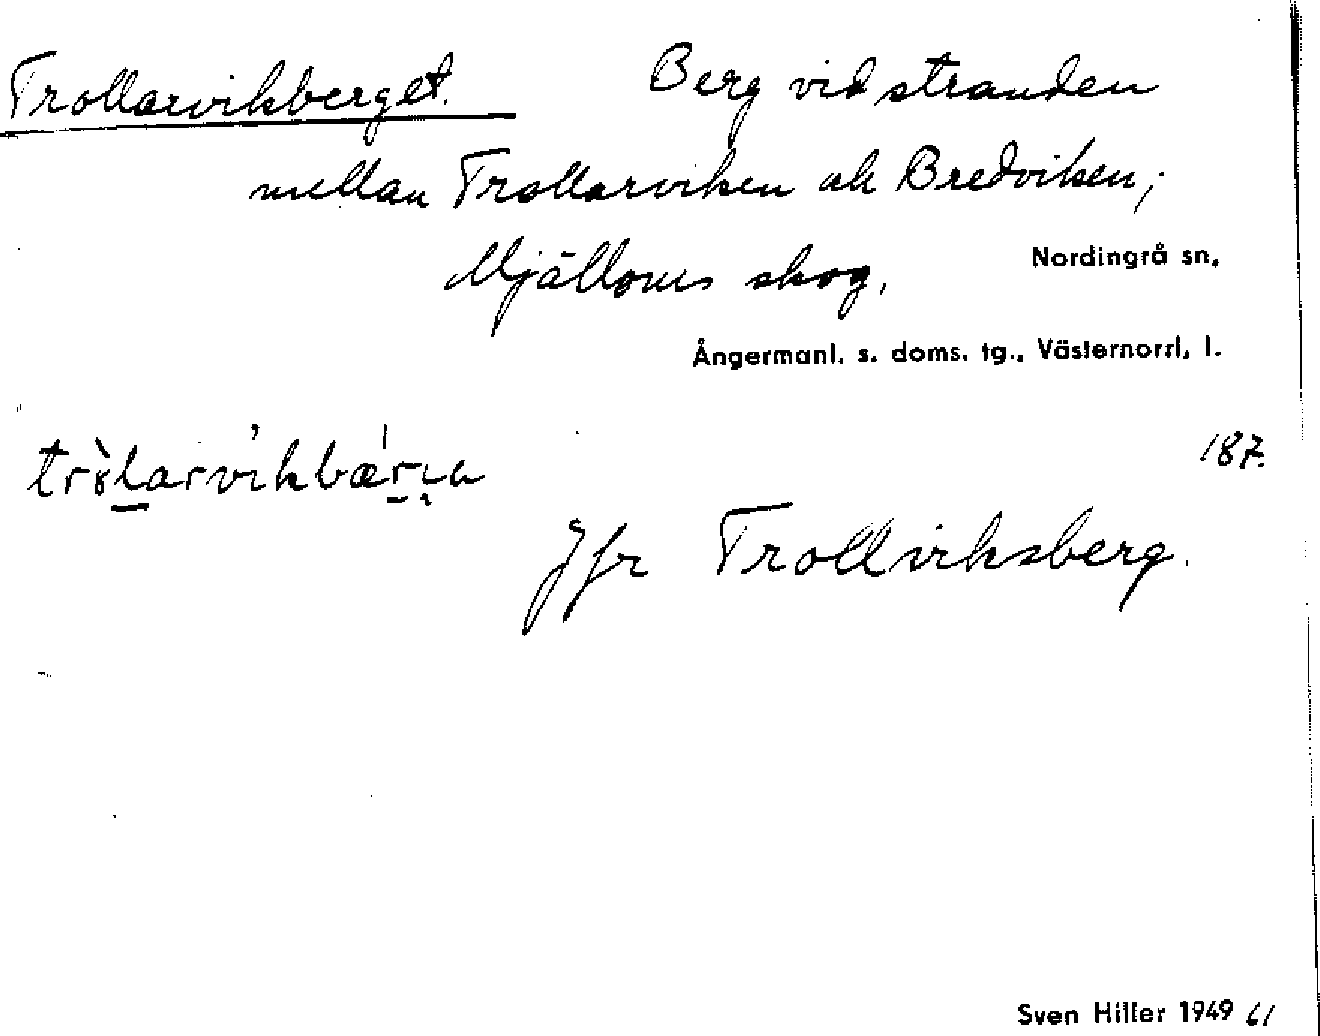 Trollarvikberget. Berg vid stranden
mellan Trollarviken ock Bredviken;
Mjälloms skog, Nordingrå sn,
Ångermanl. s. doms. tg., Västernorrl. l.
187.
Jfr Trollviksberg.
Sven Hiller 1949 61